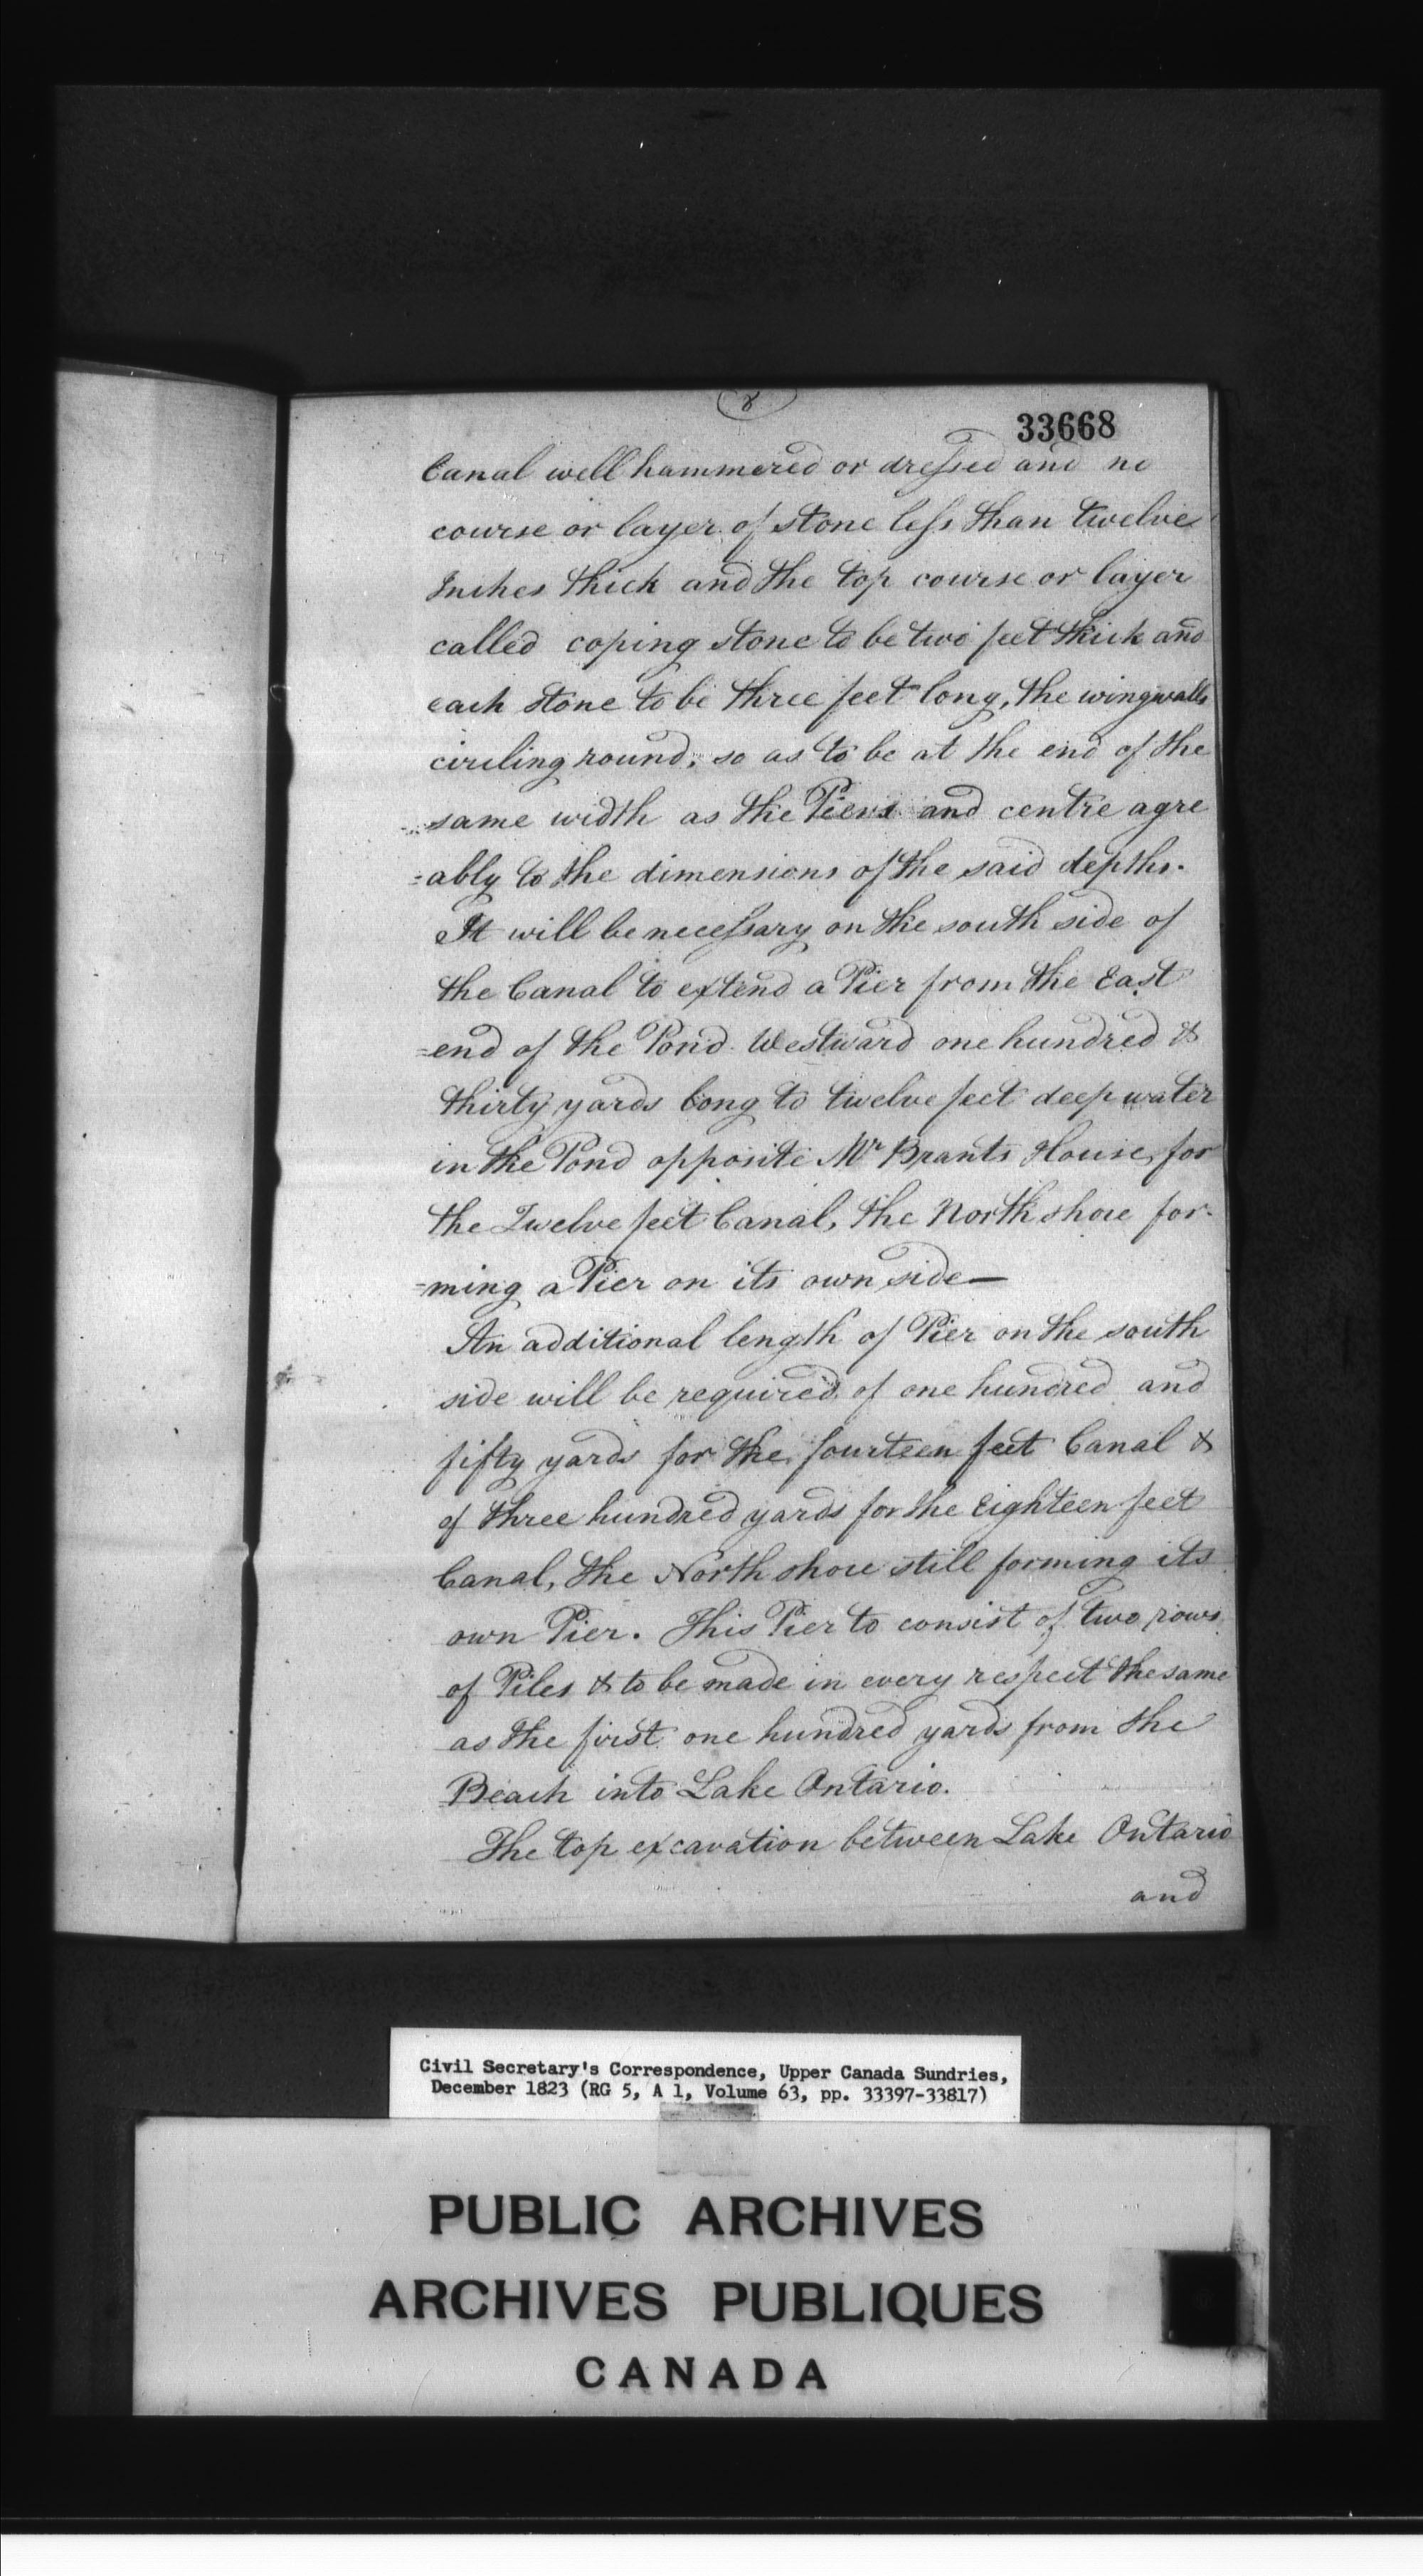 8
33668
Canal well hammered or dressed and no
course or layer of stone less than twelve
Inches thick and the top course or layer
called coping stone to be two feet thick and
each stone to be three feet long, the wingwalls
circling round, so as to be at the end of the
same width as the Piers and centre agre
=ably to the dimensions of the said depths.
It will be necessary on the south side of
the Canal to extend a Pier from the East
=end of the Pond Westward one hundred &
thirty yards long to twelve feet deep water
in the Pond opposite Mr Brants House, for
the Twelve feet Canal, the North shore for-
=ming a Pier on its own side—
An additional length of Pier on the south
side will be required of one hundred and
fifty yards for the fourteen feet Canal &
of three hundred yards for the Eighteen feet
Canal, the North shore still forming its
own Pier. This Pier to consist of two rows
of Piles & to be made in every respect the same
as the first one hundred yards from the
Beach into Lake Ontario.
The top excavation between Lake Ontario
and
Civil Secretary's Correspondence, Upper Canada Sundries,
December 1823 (RG 5, A 1, Volume 63, pp. 33397-33817)
PUBLIC ARCHIVES
ARCHIVES PUBLIQUES
CANADA